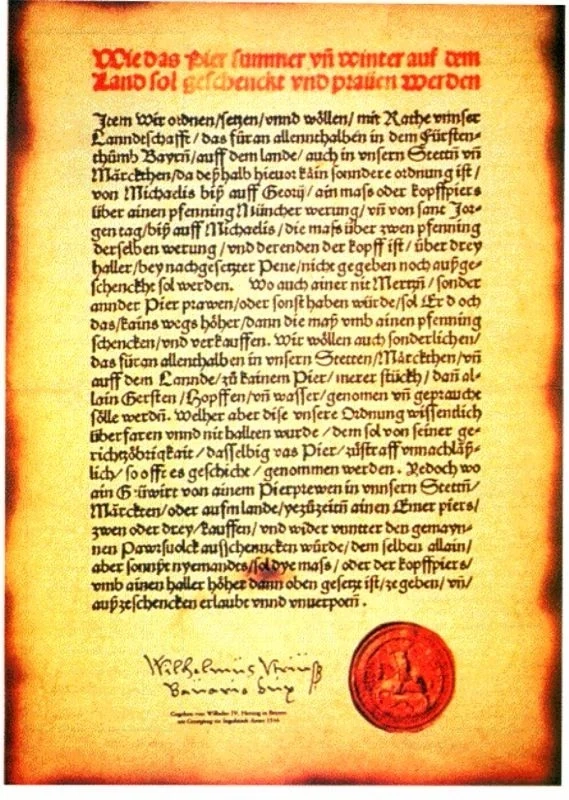 Wie das Pier summer vñ winter auf dem
Land sol geschenckt vnd prauen werden
Item Wir ordnen/setzen/vnnd wöllen/mit Rathe vnnser
Lanndtschafft/das füran allennthalben in dem Fürsten-
thůmb Bayrñ/auff dem lande/auch in vnsern Stettñ vñ
Märckthen/da deßhalb hieuor käin sonndere ordnung ist/
von Michaelis biß auff Georij/ain mass oder kopffpiers
über ainen pfenning Müncher werung/vñ von sant Jor-
gen tag/biß auff Michaelis/die mass über zwen pfenning
derselben werung/vnd derenden der kopff ist/über drey
haller/bey nachgesetzter Pene/nicht gegeben noch außge-
schenckhe sol werden. Wo auch ainer nit Mertzñ/sonder
annder Pier prawen/oder sonst haben würde/sol Er d och
das/kains wegs höher/dann die maß vmb ainen pfenning
schencken/vnd verkauffen. Wir wöllen auch sonderlichen/
das füran allenthalben in vnsern Stetten/Märckthen/vñ
auff dem Lannde/zů kainem Pier/merer stückh/dañ al-
lain Gersten/Hopffen/vñ wasser/genomen vñ gepraucht
sölle werdñ. Welher aber dise vnsere Ordnung wissentlich
überfaren vnnd nit hallten wurde/dem sol von seiner ge-
richtzöbrigkait/dasselbig vas Pier/zůstraff vnnachläß-
lich/so offt es geschicht/genommen werden. Yedoch wo
ain G üwirt von ainem Pierprewen in vnnsern Stettñ/
Märckten/oder aufm lande/yezůzeitñ ainen Emer piers/
zwen oder drey/kauffen/vnd wider vnntter den gemayn-
nen Pawrsuolck ausschenncken würde/dem selben allain/
aber sonnßt nyemandts/sol dye mass/oder der kopffpiers/
vmb ainen haller höher dann oben gesetzt ist/ze geben/vñ/
außzeschencken erlaubt vnnd vnuerpotñ.
Wilhelmus
Gegeben von Wilhelm IV. Herzog in Bayern
am Georgitag zu Ingolstadt Anno 1516